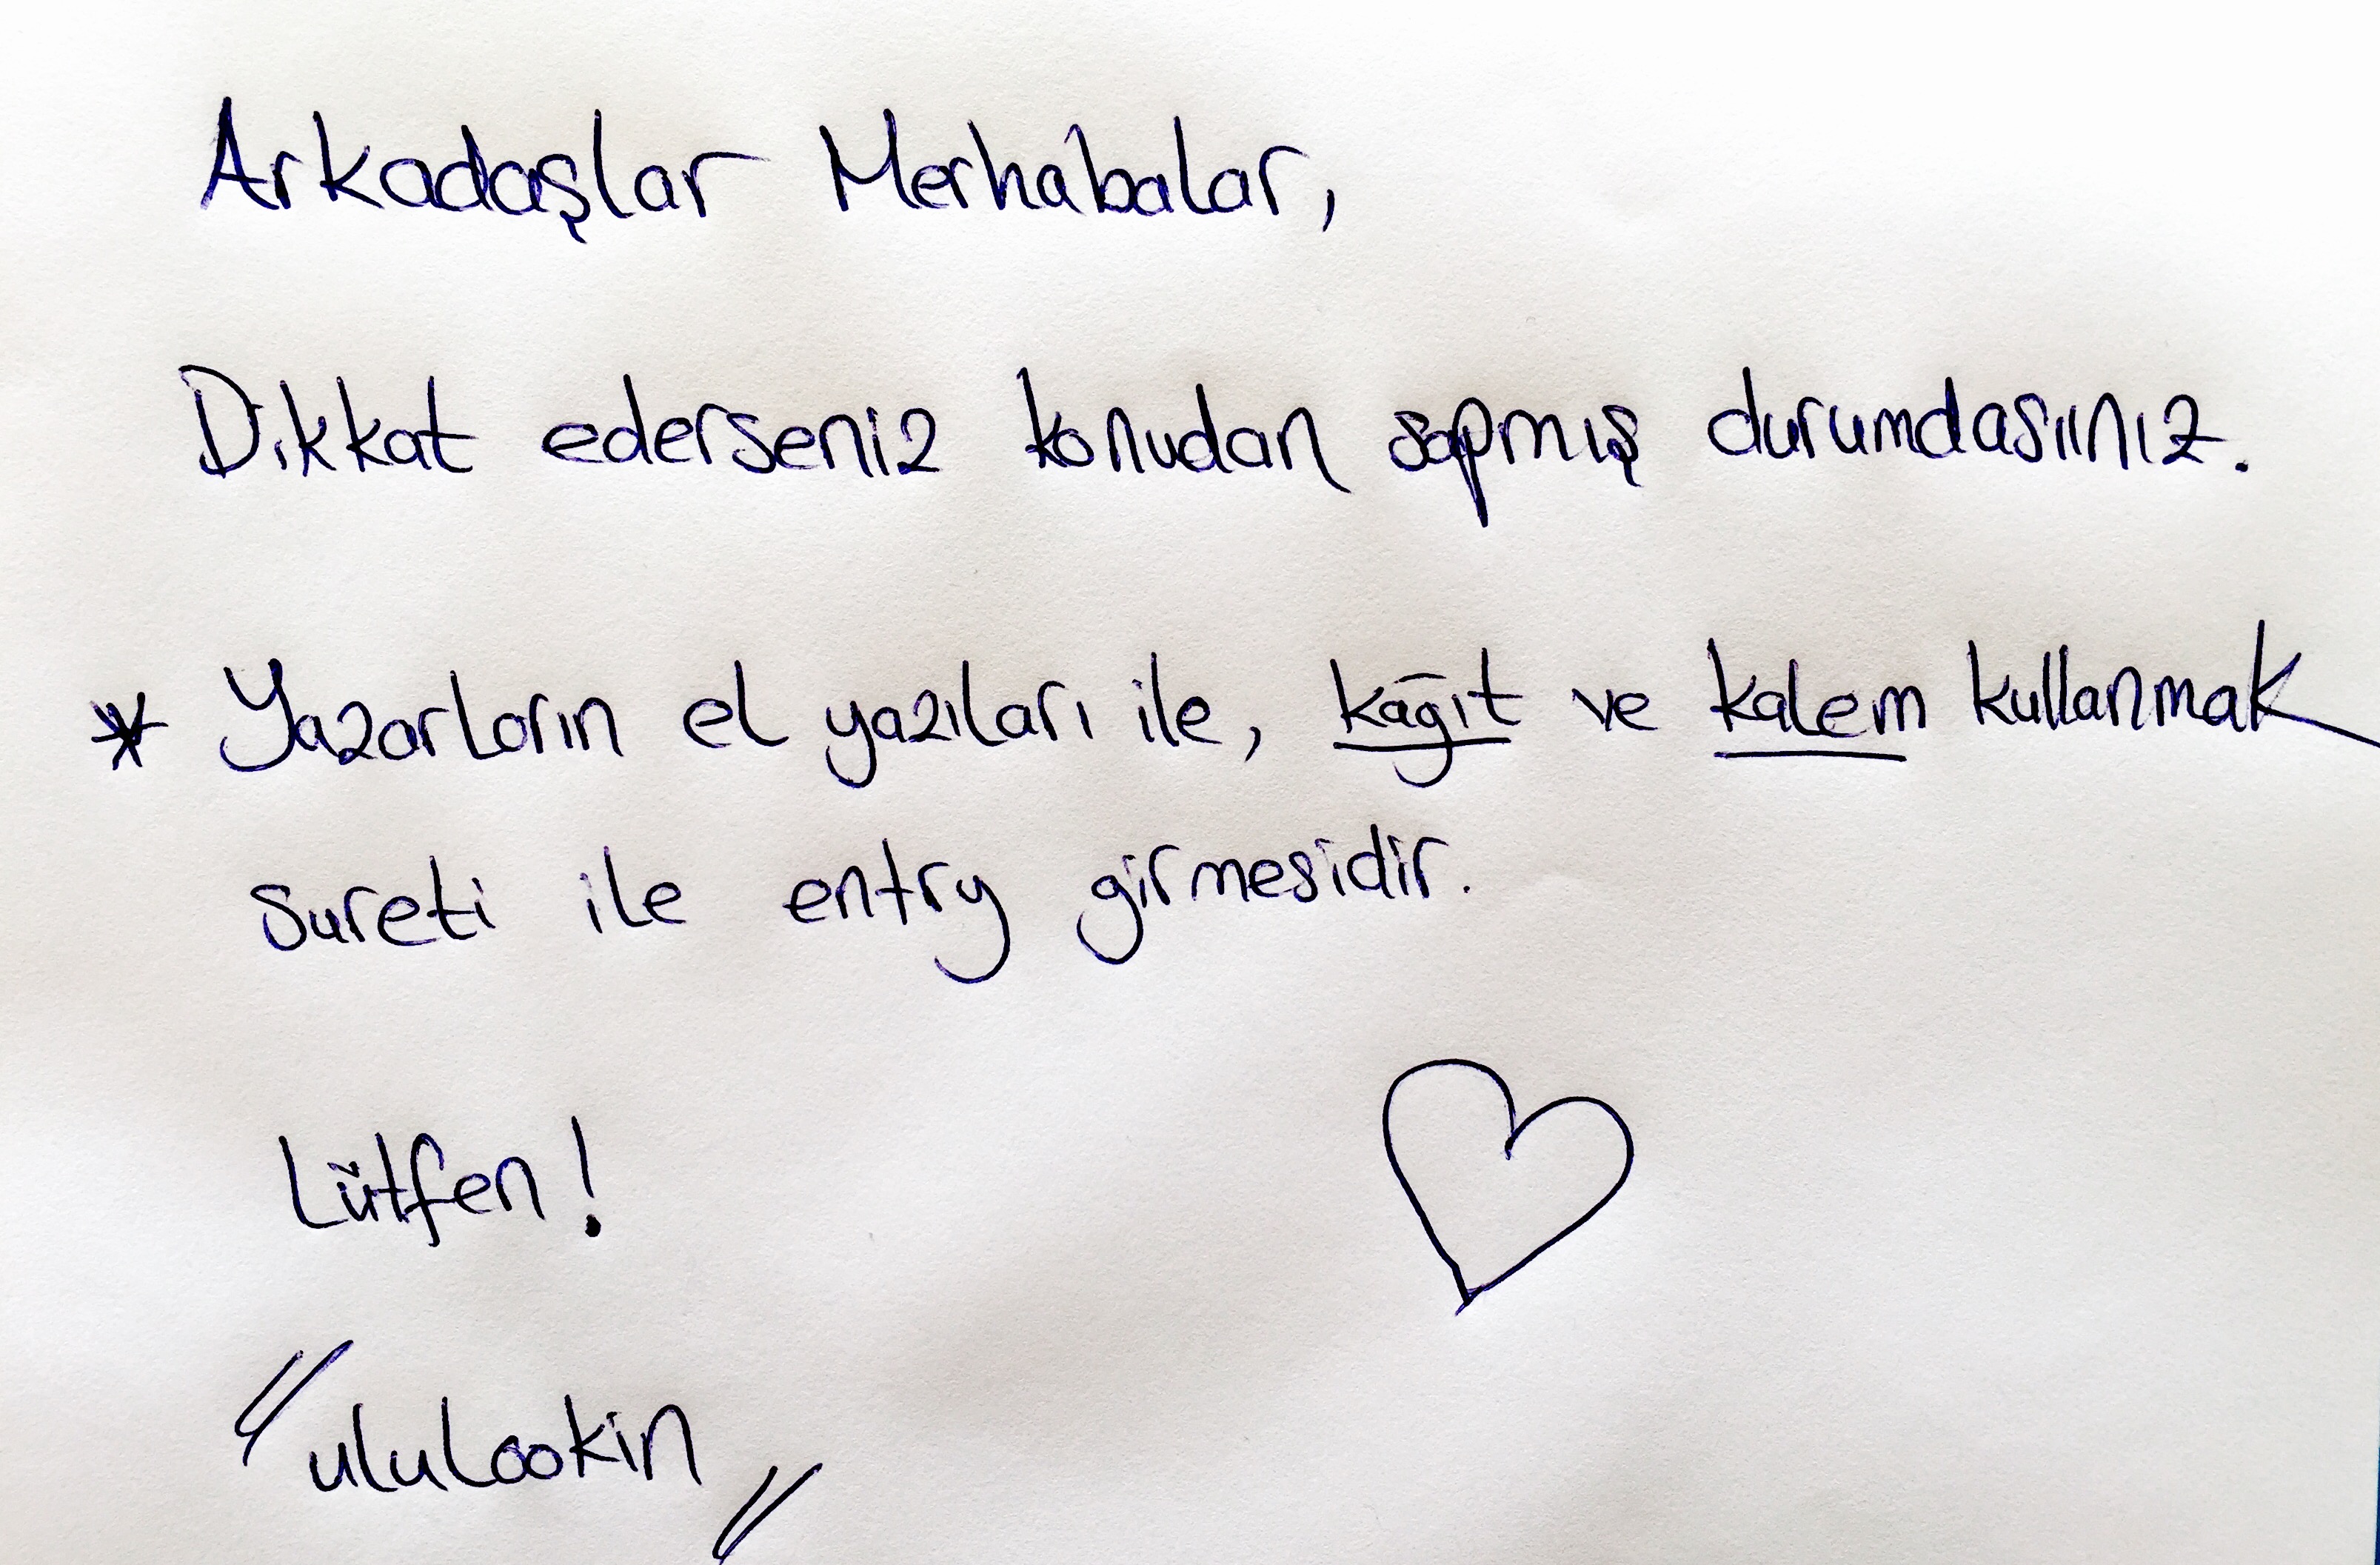 Arkadaşlar Merhabalar,
Dikkat ederseniz konudan sapmış durumdasıınız.
* Yazarların el yazıları ile, kağıt ve kalem kullanmak
sureti ile entry girmesidir.
Lütfen!
"ululookin"